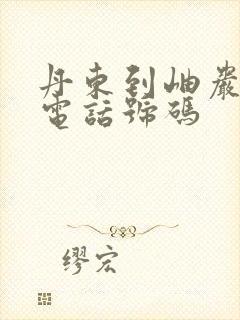 丹東到岫巖
電話號碼
繆宏